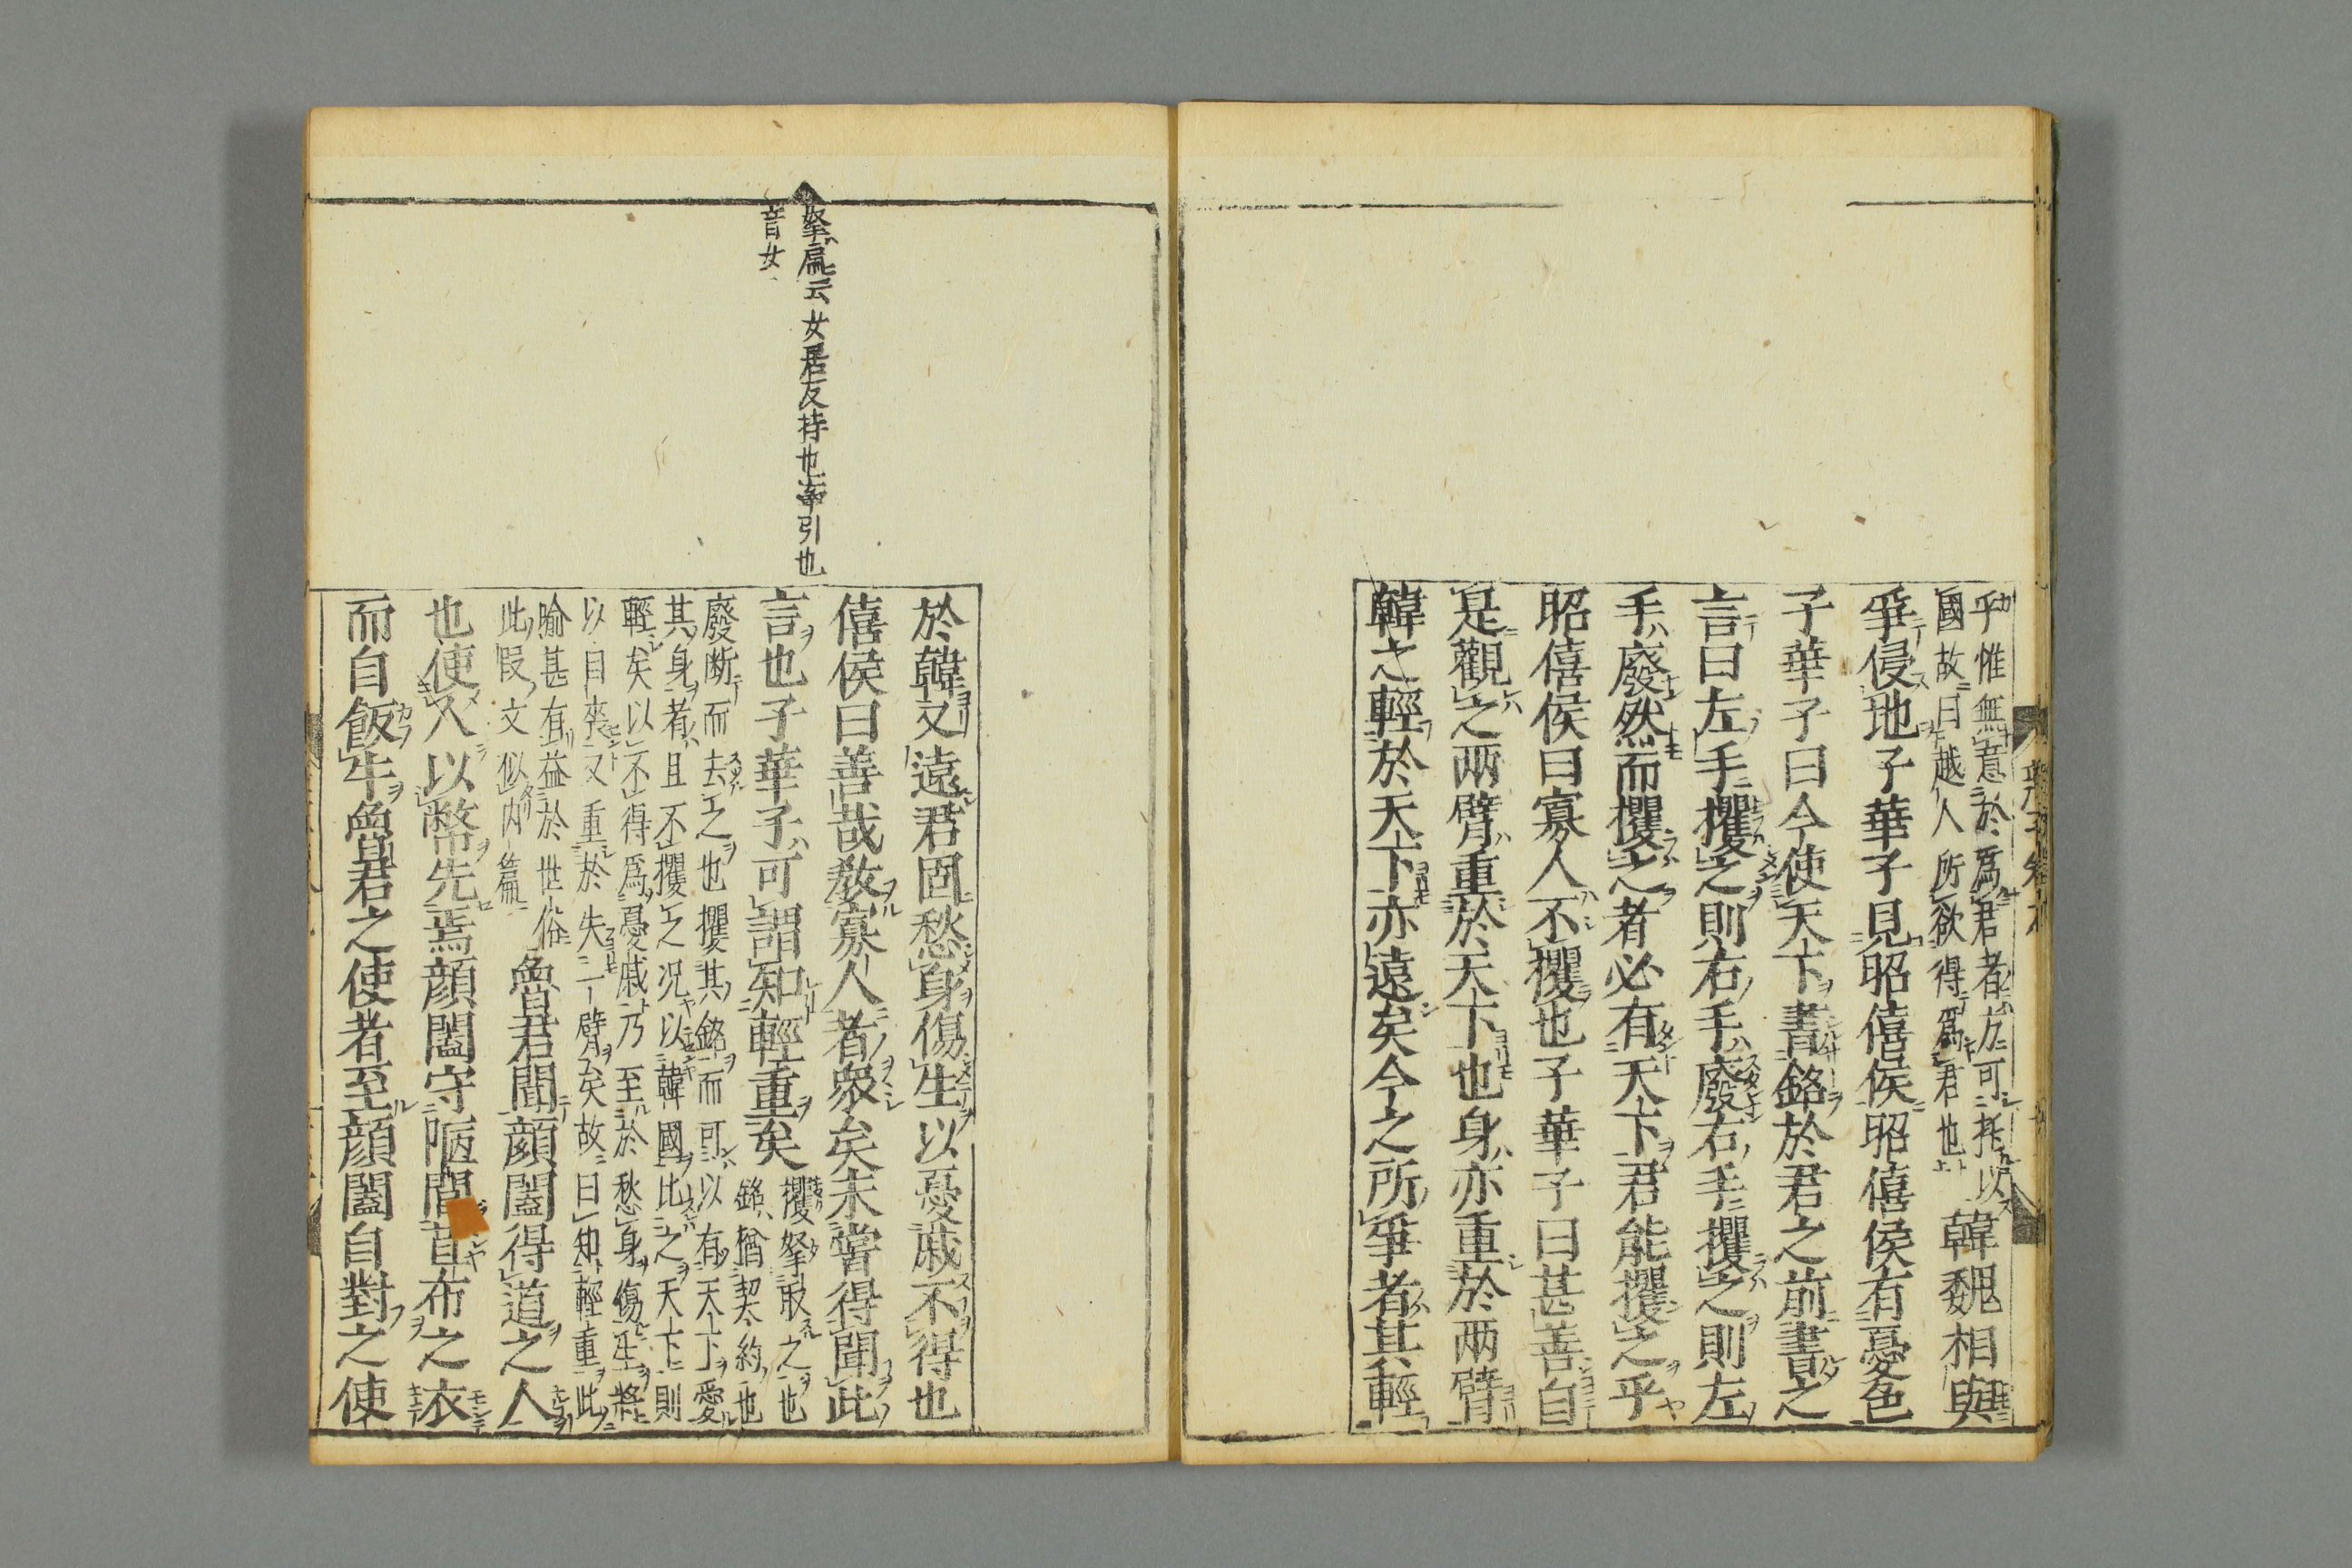 乎惟無意於爲君者方可托以
國故曰越人所欲得爲君也
韓魏相與
爭侵地子華子見昭僖侯昭僖侯有憂色
子華子曰今使天下書銘於君之前書之
言曰左手攫之則右手廢右手攫之則左
手廢然而攫之者必有天下君能攫之乎
昭僖侯曰寡人不攫也子華子曰甚善自
是觀之兩臂重於天下也身亦重於兩臂
韓之輕於天下亦遠矣今之所爭者其輕
拏扁云女居反持也牽引也
音女
於韓又遠君固愁身傷生以憂戚不得也
僖侯曰善哉敎寡人者衆矣未嘗得聞此
言也子華子可謂知輕重矣
攫拏取之也
銘猶契約也
廢断而去之也攫其銘而可以有天下愛
其身者且不攫之况以韓國比之天下則
輕矣以不得爲憂戚乃至於愁身傷生將
以自喪又重於失一臂矣故曰知輕重此
喻甚有益於世俗
此叚文似内篇
魯君聞顔闔得道之人
也使人以幣先焉顔闔守陋閭苴布之衣
而自飯牛魯君之使者至顔闔自對之使